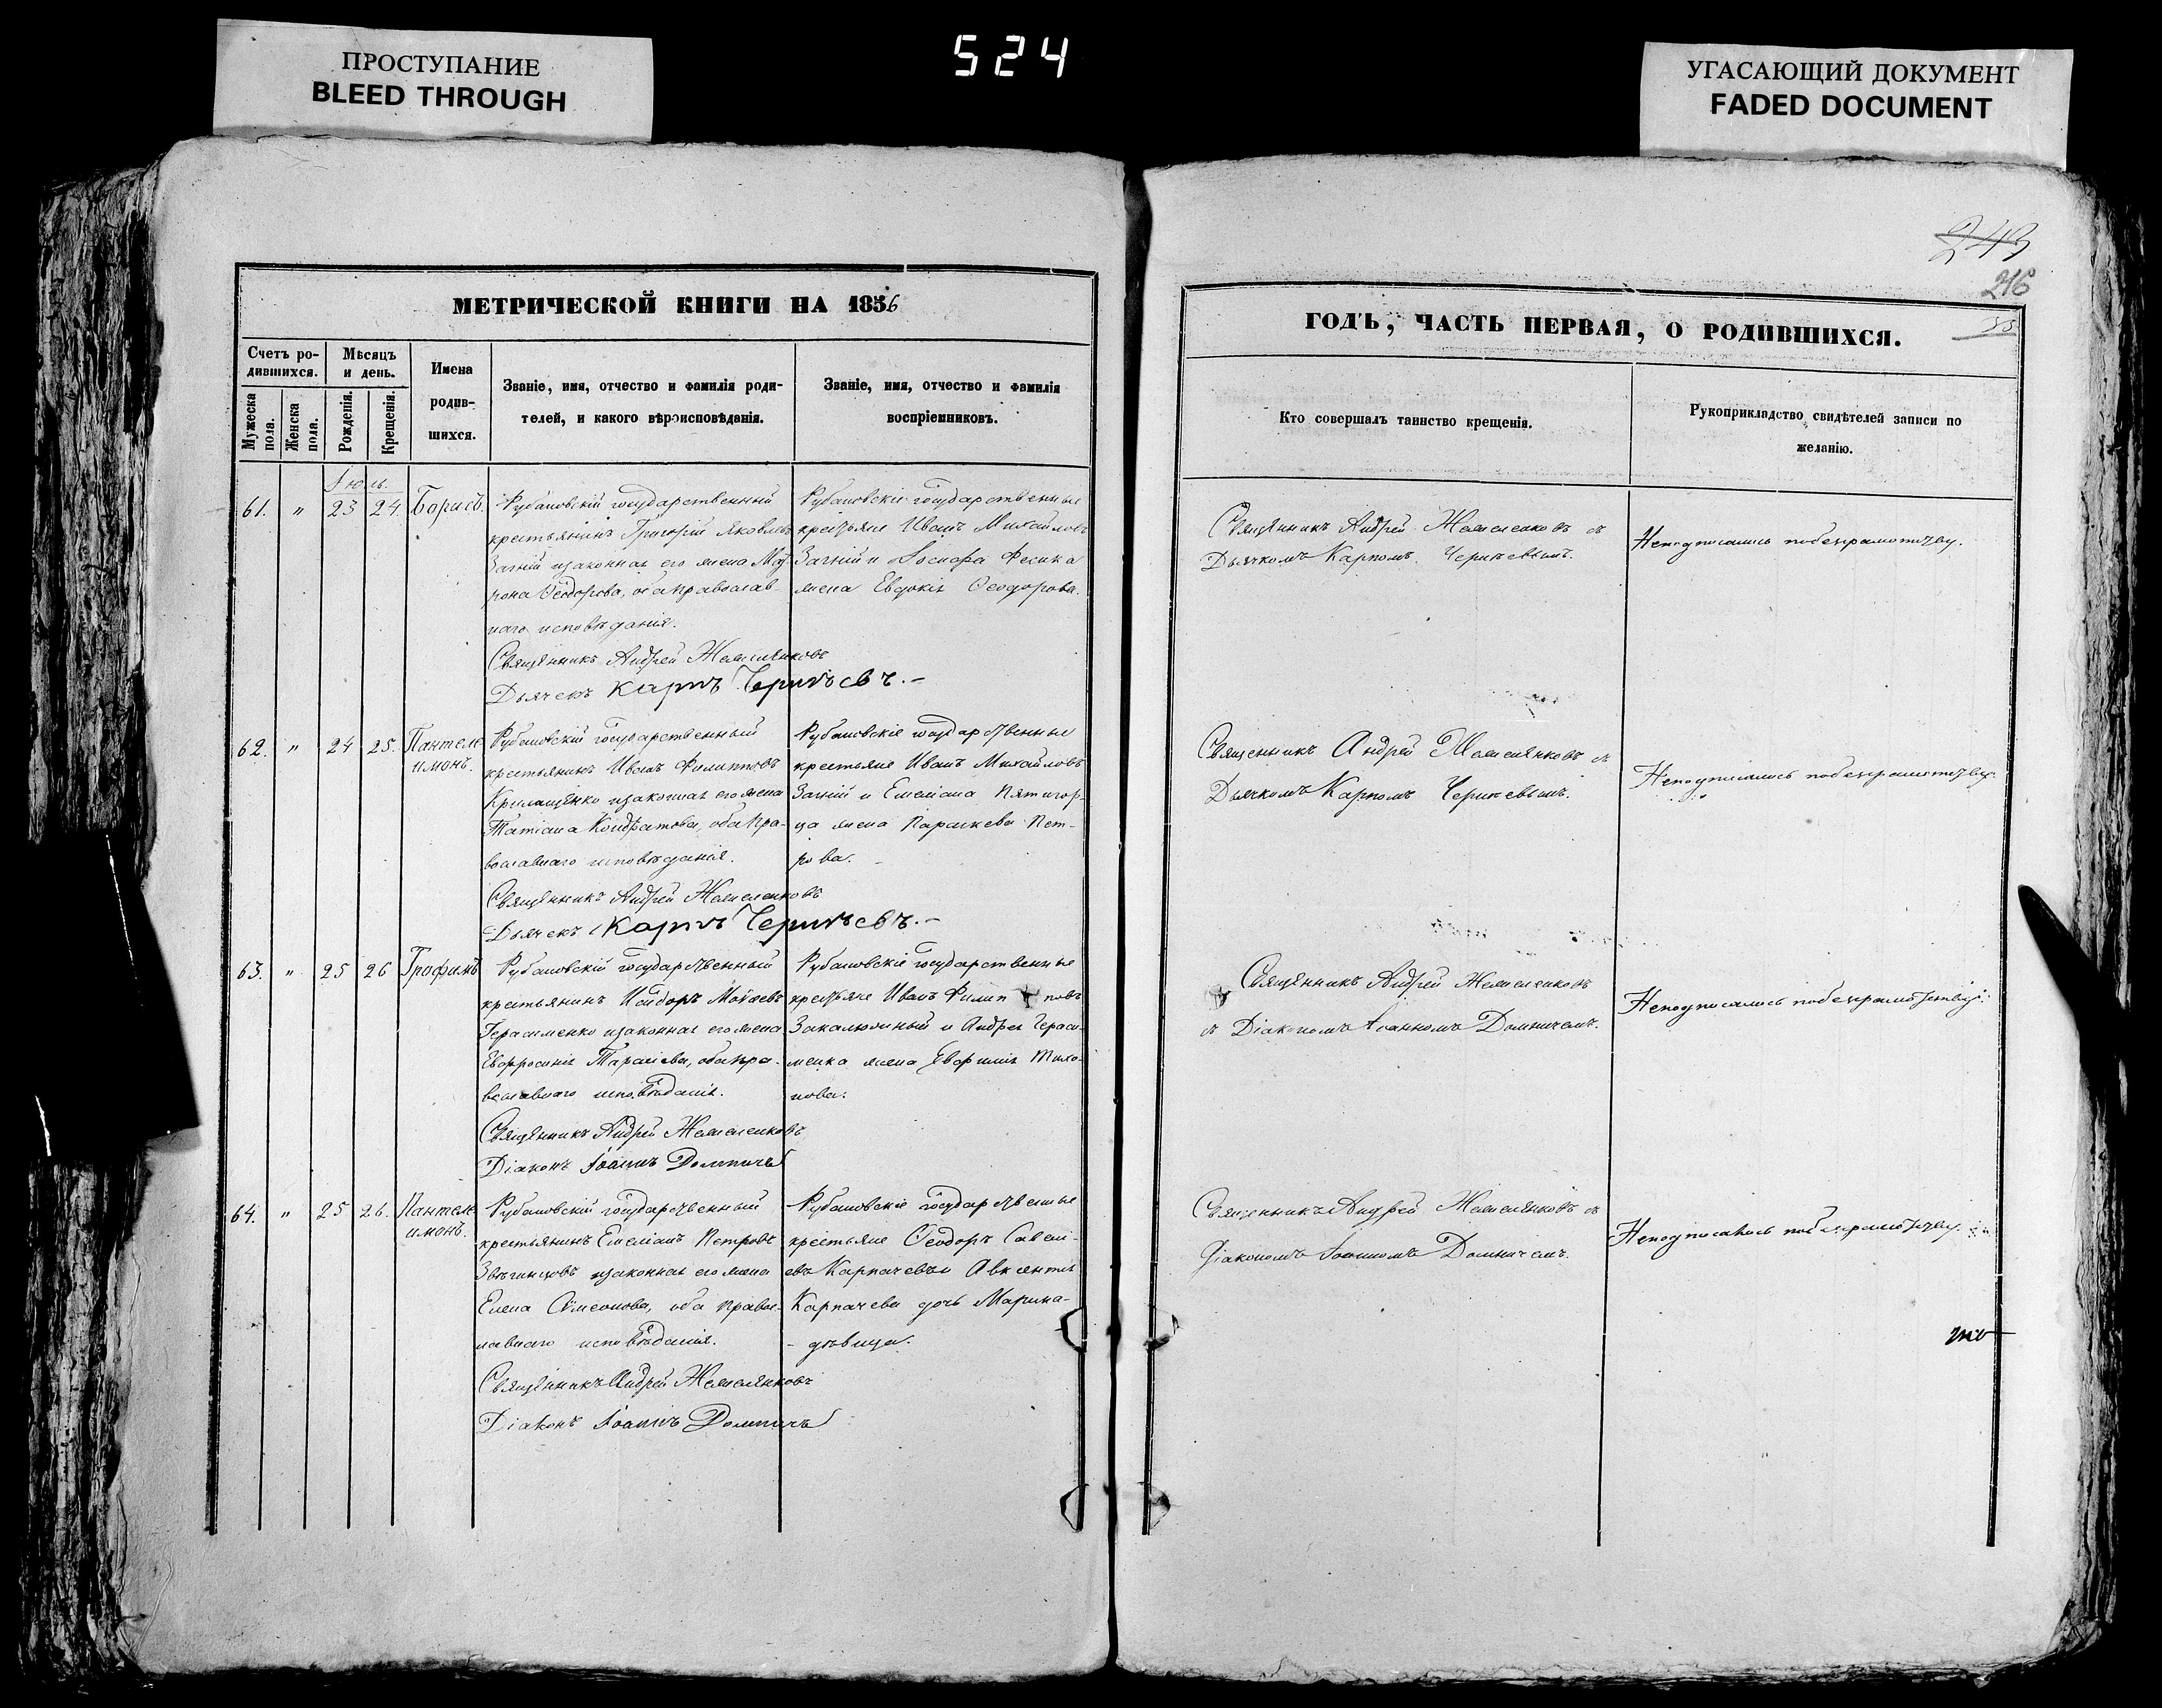 ПРОСТУПАНИЕ
BLEED THROUGH
524
УГАСАЮЩИЙ ДОКУМЕНТ
FADED DOCUMENT
243
216
МЕТРИЧЕСКОЙ КНИГИ НА 1856
Счетъ ро-
дившихся.
Мѣсяцъ
и день.
Имена
родив-
шихся.
Званіе, имя, отчество и фамилія роди-
телей, и какого вѣроисповѣданія.
Званіе, имя, отчество и фамилія
воспріемниковъ.
Мужеска
пола.
Женска
пола.
Рожденія.
Крещенія.
Іюль
61. " 23 24 Борисъ.
Рубановскій государственный
крестьянинъ Григорій Яковлевъ
изаконная его жена Мат
рона Ѳеодорова, оба православ-
наго исповѣданія.
Священникъ Андрей
Дьячекъ Карпъ
Рубановскіе государственные
крестьяне Иванъ Михайловъ
и Іосифа
жена Евдокія Ѳеодорова.
62. " 24 25. Пантеле
имонъ.
Рубановскій государственный
крестьянинъ Иванъ Филипповъ
изаконная его жена
Татіана Кондратова, оба пра-
вославнаго исповѣданія.
Священникъ Андрей
Дьячекъ Карпъ
Рубановскіе государственные
крестьяне Иванъ Михайловъ
и Емеліана Пятигор-
ца жена Параскева Пет-
рова.
63. " 25 26 Трофимъ
Рубановскій государственный
крестьянинъ
Герасименко изаконная его жена
Евфросинія оба пра-
вославнаго исповѣданія.
Священникъ Андрей
Діаконъ Іоаннъ Домничъ
Рубановскіе государственные
крестьяне Иванъ Филип повъ
и Андрея Гераси-
менка жена Евфимія Тихо-
нова.
64. " 25 26. Пантеле
имонъ.
Рубановскій государственный
крестьянинъ Емеліанъ Петровъ
Звѣгинцовъ изаконная его жена
Елена Симеонова, оба правос-
лавнаго исповѣданія.
Священникъ Андрей
Діаконъ Іоаннъ Домничъ
Рубановскіе государственные
крестьяне Ѳеодоръ Савелі-
евъ Карпачевъ и Авксентія
Карпачева дочь Марина-
- дѣвица.
ГОДЪ, ЧАСТЬ ПЕРВАЯ, О РОДИВШИХСЯ.
Кто совершалъ таинство крещенія.
Рукоприкладство свидѣтелей записи по
желанію.
Священникъ Андрей съ
Дьячкомъ Карпомъ
Неподписались побезграмотству.
Священникъ Андрей съ
Дьячкомъ Карпомъ
Неподписались побезграмотству.
Священникъ Андрей
съ Діакономъ Іоанномъ Домничемъ.
Неподписались побезграмотству.
Священникъ Андрей съ
Діакономъ Іоанномъ Домничемъ.
Неподписались побезграмотству.